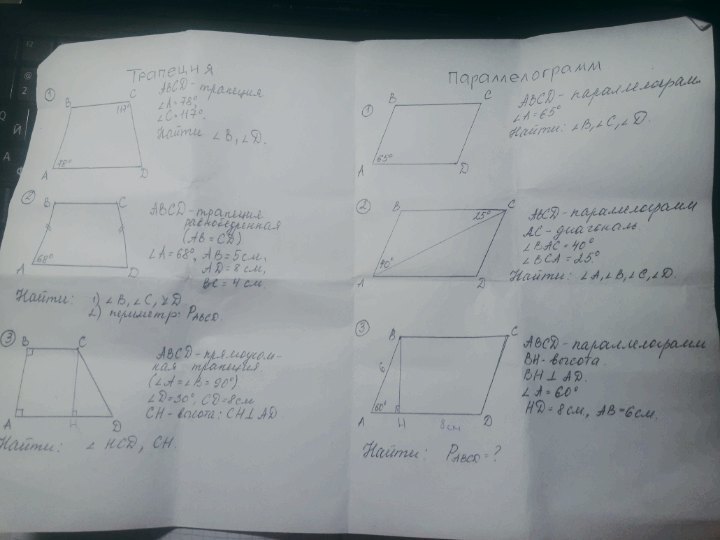 Трапеция
①
B
C
117°
78°
A
D
ABCD - трапеция
∠A=78°
∠C=117°.
Найти ∠B, ∠D.
②
B
C
68°
A
D
ABCD - трапеция
равнобедренная
(AB=CD)
∠A=68°, AB=5см,
AD=8см,
BC=4см.
Найти: 1) ∠B, ∠C, ∠D
2) периметр: P_ABCD.
③
B
C
A
H
D
ABCD - прямоуголь-
ная трапеция
(∠A=∠B=90°)
∠D=30°, CD=8см
CH - высота: CH⊥AD.
Найти: ∠HCD, CH.
Параллелограмм
①
B
C
65°
A
D
ABCD - параллелограмм
∠A=65°
Найти: ∠B, ∠C, ∠D.
②
B
C
25°
40°
A
D
ABCD - параллелограмм
AC - диагональ
∠BAC=40°
∠BCA=25°.
Найти: ∠A, ∠B, ∠C, ∠D.
③
B
C
6
60°
A
H
8см
D
ABCD - параллелограмм
BH - высота.
BH⊥AD.
∠A=60°
HD=8см, AB=6см.
Найти: P_ABCD=?